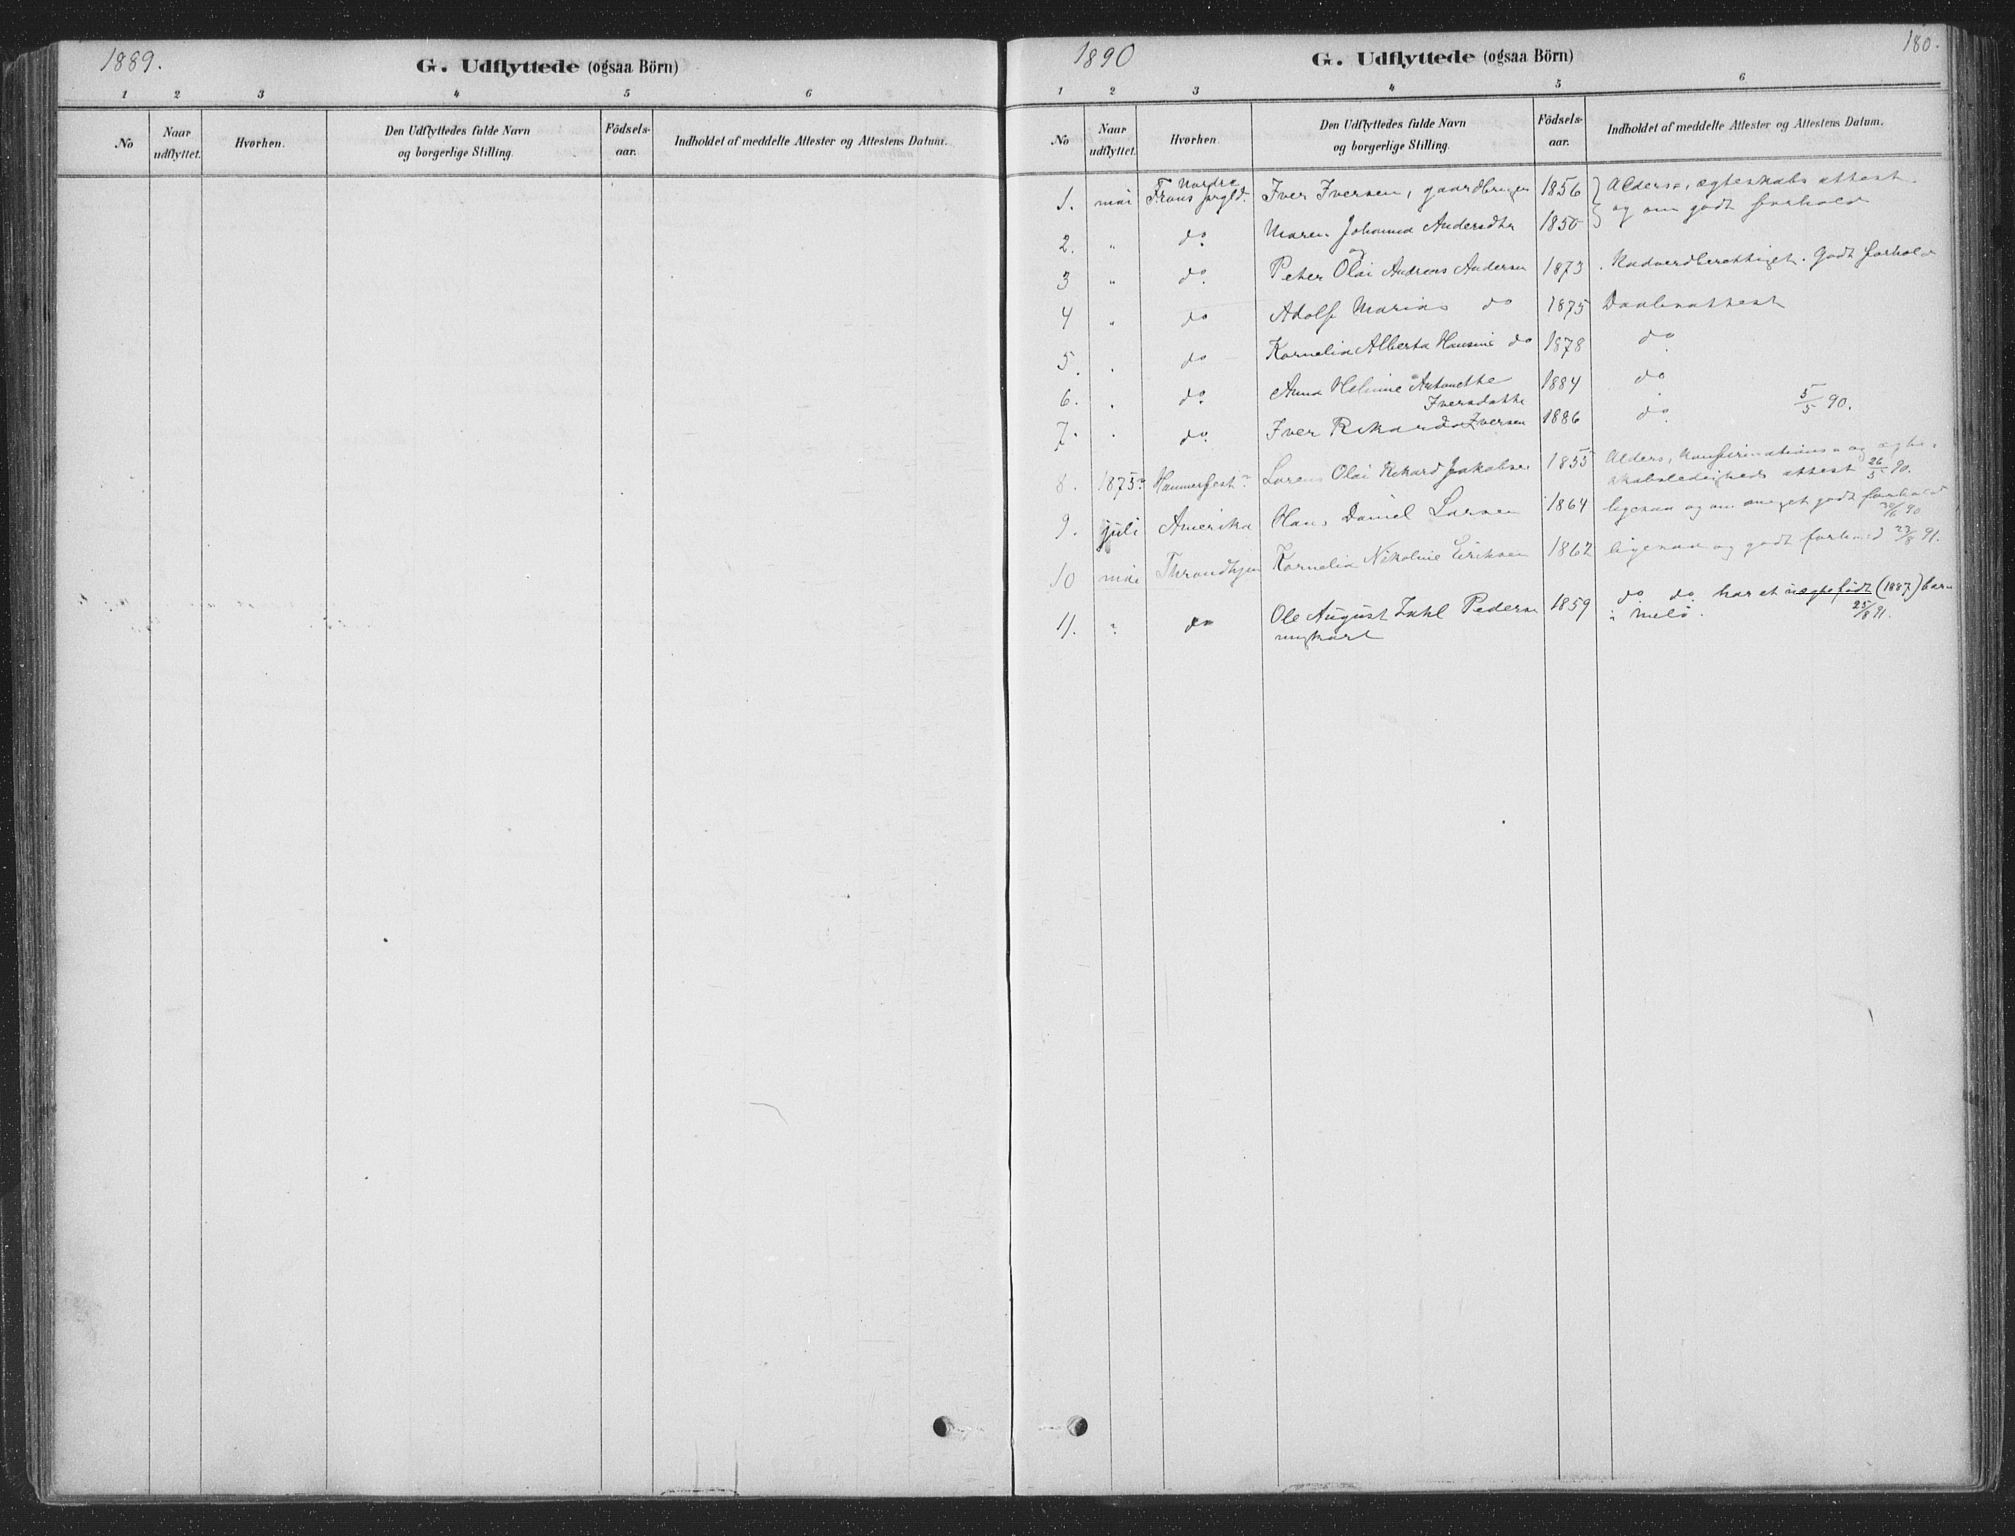 1889.
G. Udflyttede (ogsaa Börn)
1 2 3 4 5 6
No Naar udflyttet. Hvorhen. Den Udflyttedes fulde Navn og borgerlige Stilling. Födsels-aar. Indholdet af meddelte Attester og Attestens Datum.
1890
180.
G. Udflyttede (ogsaa Börn)
1 2 3 4 5 6
No Naar udflyttet. Hvorhen. Den Udflyttedes fulde Navn og borgerlige Stilling. Födsels-aar. Indholdet af meddelte Attester og Attestens Datum.
Nordre
1. mai Iver Iversen, gaardbruger 1856 Alders-, ægteskabs attest
og om godt forhold
2. " do Maren Johanna Andersdtr 1850
og
3 " do. Peter Olai Andreas Andersen 1873 Nadverdberettiget. Godt forhold
4 " do Adolf Marius do 1875 Daabsattest
5. " do Kornelia Alberta Hansine do 1878 do
6. " do. Anna Helmine Antonette 1884 do
Iversdatter
7. " do. Iver Rikard Iversen 1886 do 5/5 90.
8. 1875? Hammerfest? Lorens Olai Rikard Jakobsen 1855 Alders, konfirmations- og ægte-
skabsledigheds attest 26/5 90.
9. juli Amerika Hans Daniel Larsen 1864 ligesaa og om meget godt forhold
90
10 mai Throndhjem Kornelia Nikoline Eriksen 1862 ligesaa og godt forhold 23/8 91.
11. " do Ole August Zahl Pedersen 1859 do do. har et uægtefödt (1887) barn
ungkarl i Melö. 25/8 91.